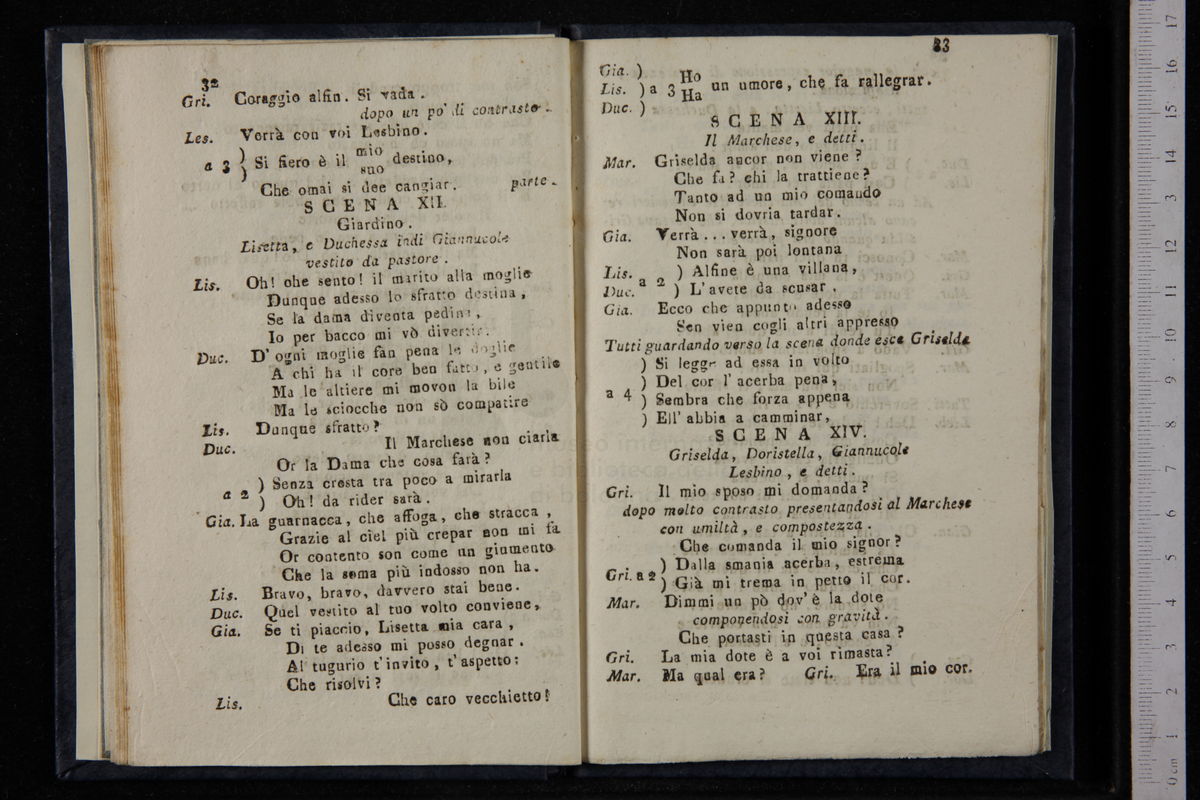 32
Gri. Coraggio alfin. Si vada.
dopo un po' di contrasto.
Les. Verrà con voi Lesbino.
a 3 ) Si fiero è il mio destino,
suo
Che omai si dee cangiar. parte.
SCENA XII.
Giardino.
Lisetta, e Duchessa indi Giannucole
vestito da pastore.
Lis. Oh! che sento! il marito alla moglie
Dunque adesso lo sfratto destina,
Se la dama diventa pedina,
Io per bacco mi vò divertir.
Duc. D'ogni moglie fan pena le doglie
A chi ha il core ben fatto, e gentile
Ma le altiere mi movon la bile
Ma le sciocche non sò compatire
Lis. Dunque sfratto?
Duc. Il Marchese non ciarla
Or la Dama che cosa farà?
a 2 ) Senza cresta tra poco a mirarla
) Oh! da rider sarà.
Gia. La guarnacca, che affoga, che stracca,
Grazie al ciel più crepar non mi fa
Or contento son come un giumento
Che la soma più indosso non ha.
Lis. Bravo, bravo, davvero stai bene.
Duc. Quel vestito al tuo volto conviene,
Gia. Se ti piaccio, Lisetta mia cara,
Di te adesso mi posso degnar.
Al tugurio t'invito, t'aspetto:
Che risolvi?
Lis. Che caro vecchietto!
33
Gia. )
Lis. ) a 3 Ho un umore, che fa rallegrar.
Ha
Duc. )
SCENA XIII.
Il Marchese, e detti.
Mar. Griselda ancor non viene?
Che fa? chi la trattiene?
Tanto ad un mio comando
Non si dovria tardar.
Gia. Verrà... verrà, signore
Non sarà poi lontana
Lis. a 2 ) Alfine è una villana,
Duc. ) L'avete da scusar.
Gia. Ecco che appunto adesso
Sen vien cogli altri appresso
Tutti guardando verso la scena donde esce Griselda
) Si legge ad essa in volto
) Del cor l'acerba pena,
a 4 ) Sembra che forza appena
) Ell'abbia a camminar,
SCENA XIV.
Griselda, Doristella, Giannucole
Lesbino, e detti.
Gri. Il mio sposo mi domanda?
dopo molto contrasto presentandosi al Marchese
con umiltà, e compostezza.
Che comanda il mio signor?
Gri. a 2 ) Dalla smania acerba, estrema
) Già mi trema in petto il cor.
Mar. Dimmi un pò dov'è la dote
componendosi con gravità.
Che portasti in questa casa?
Gri. La mia dote è a voi rimasta?
Mar. Ma qual era? Gri. Era il mio cor.
0 cm 1 2 3 4 5 6 7 8 9 10 11 12 13 14 15 16 17